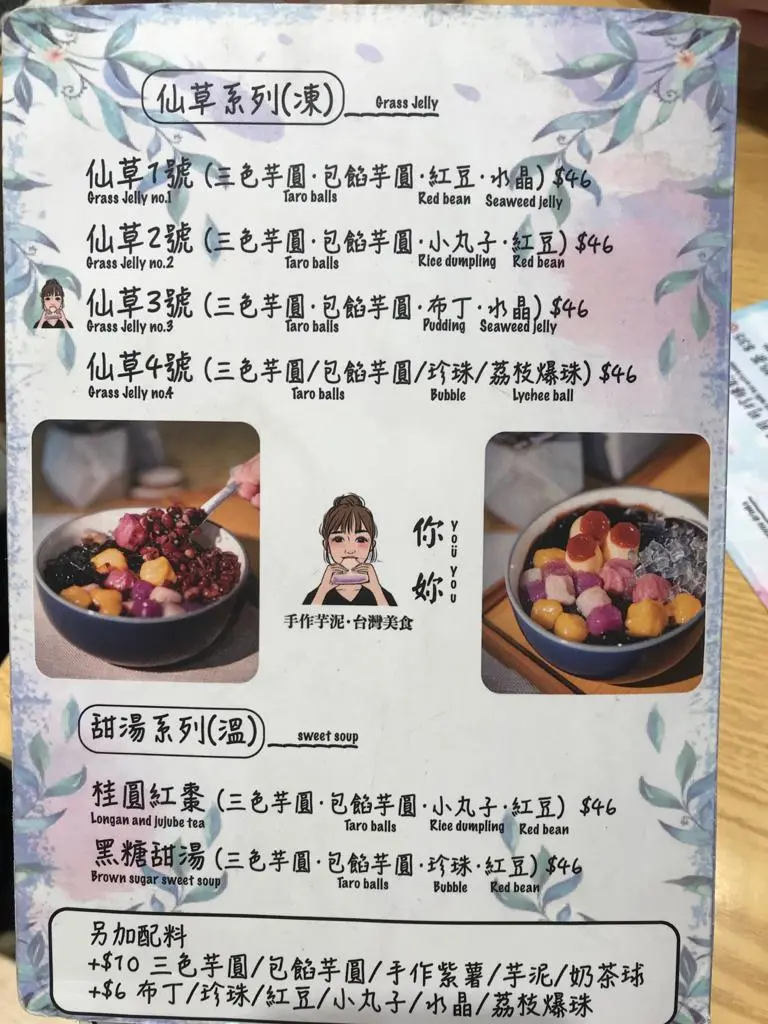 仙草系列(凍) Grass Jelly
仙草1號 (三色芋圓·包餡芋圓·紅豆·水晶) $46
Grass Jelly no.1 Taro balls Red bean Seaweed jelly
仙草2號 (三色芋圓·包餡芋圓·小丸子·紅豆) $46
Grass Jelly no.2 Taro balls Rice dumpling Red bean
仙草3號 (三色芋圓·包餡芋圓·布丁·水晶) $46
Grass Jelly no.3 Taro balls Pudding Seaweed jelly
仙草4號 (三色芋圓/包餡芋圓/珍珠/荔枝爆珠) $46
Grass Jelly no.4 Taro balls Bubble Lychee ball
你妳
You You
手作芋泥·台灣美食
甜湯系列(溫) sweet soup
桂圓紅棗 (三色芋圓·包餡芋圓·小丸子·紅豆) $46
Longan and jujube tea Taro balls Rice dumpling Red bean
黑糖甜湯 (三色芋圓·包餡芋圓·珍珠·紅豆) $46
Brown sugar sweet soup Taro balls Bubble Red bean
另加配料
+$10 三色芋圓/包餡芋圓/手作紫薯/芋泥/奶茶球
+$6 布丁/珍珠/紅豆/小丸子/水晶/荔枝爆珠